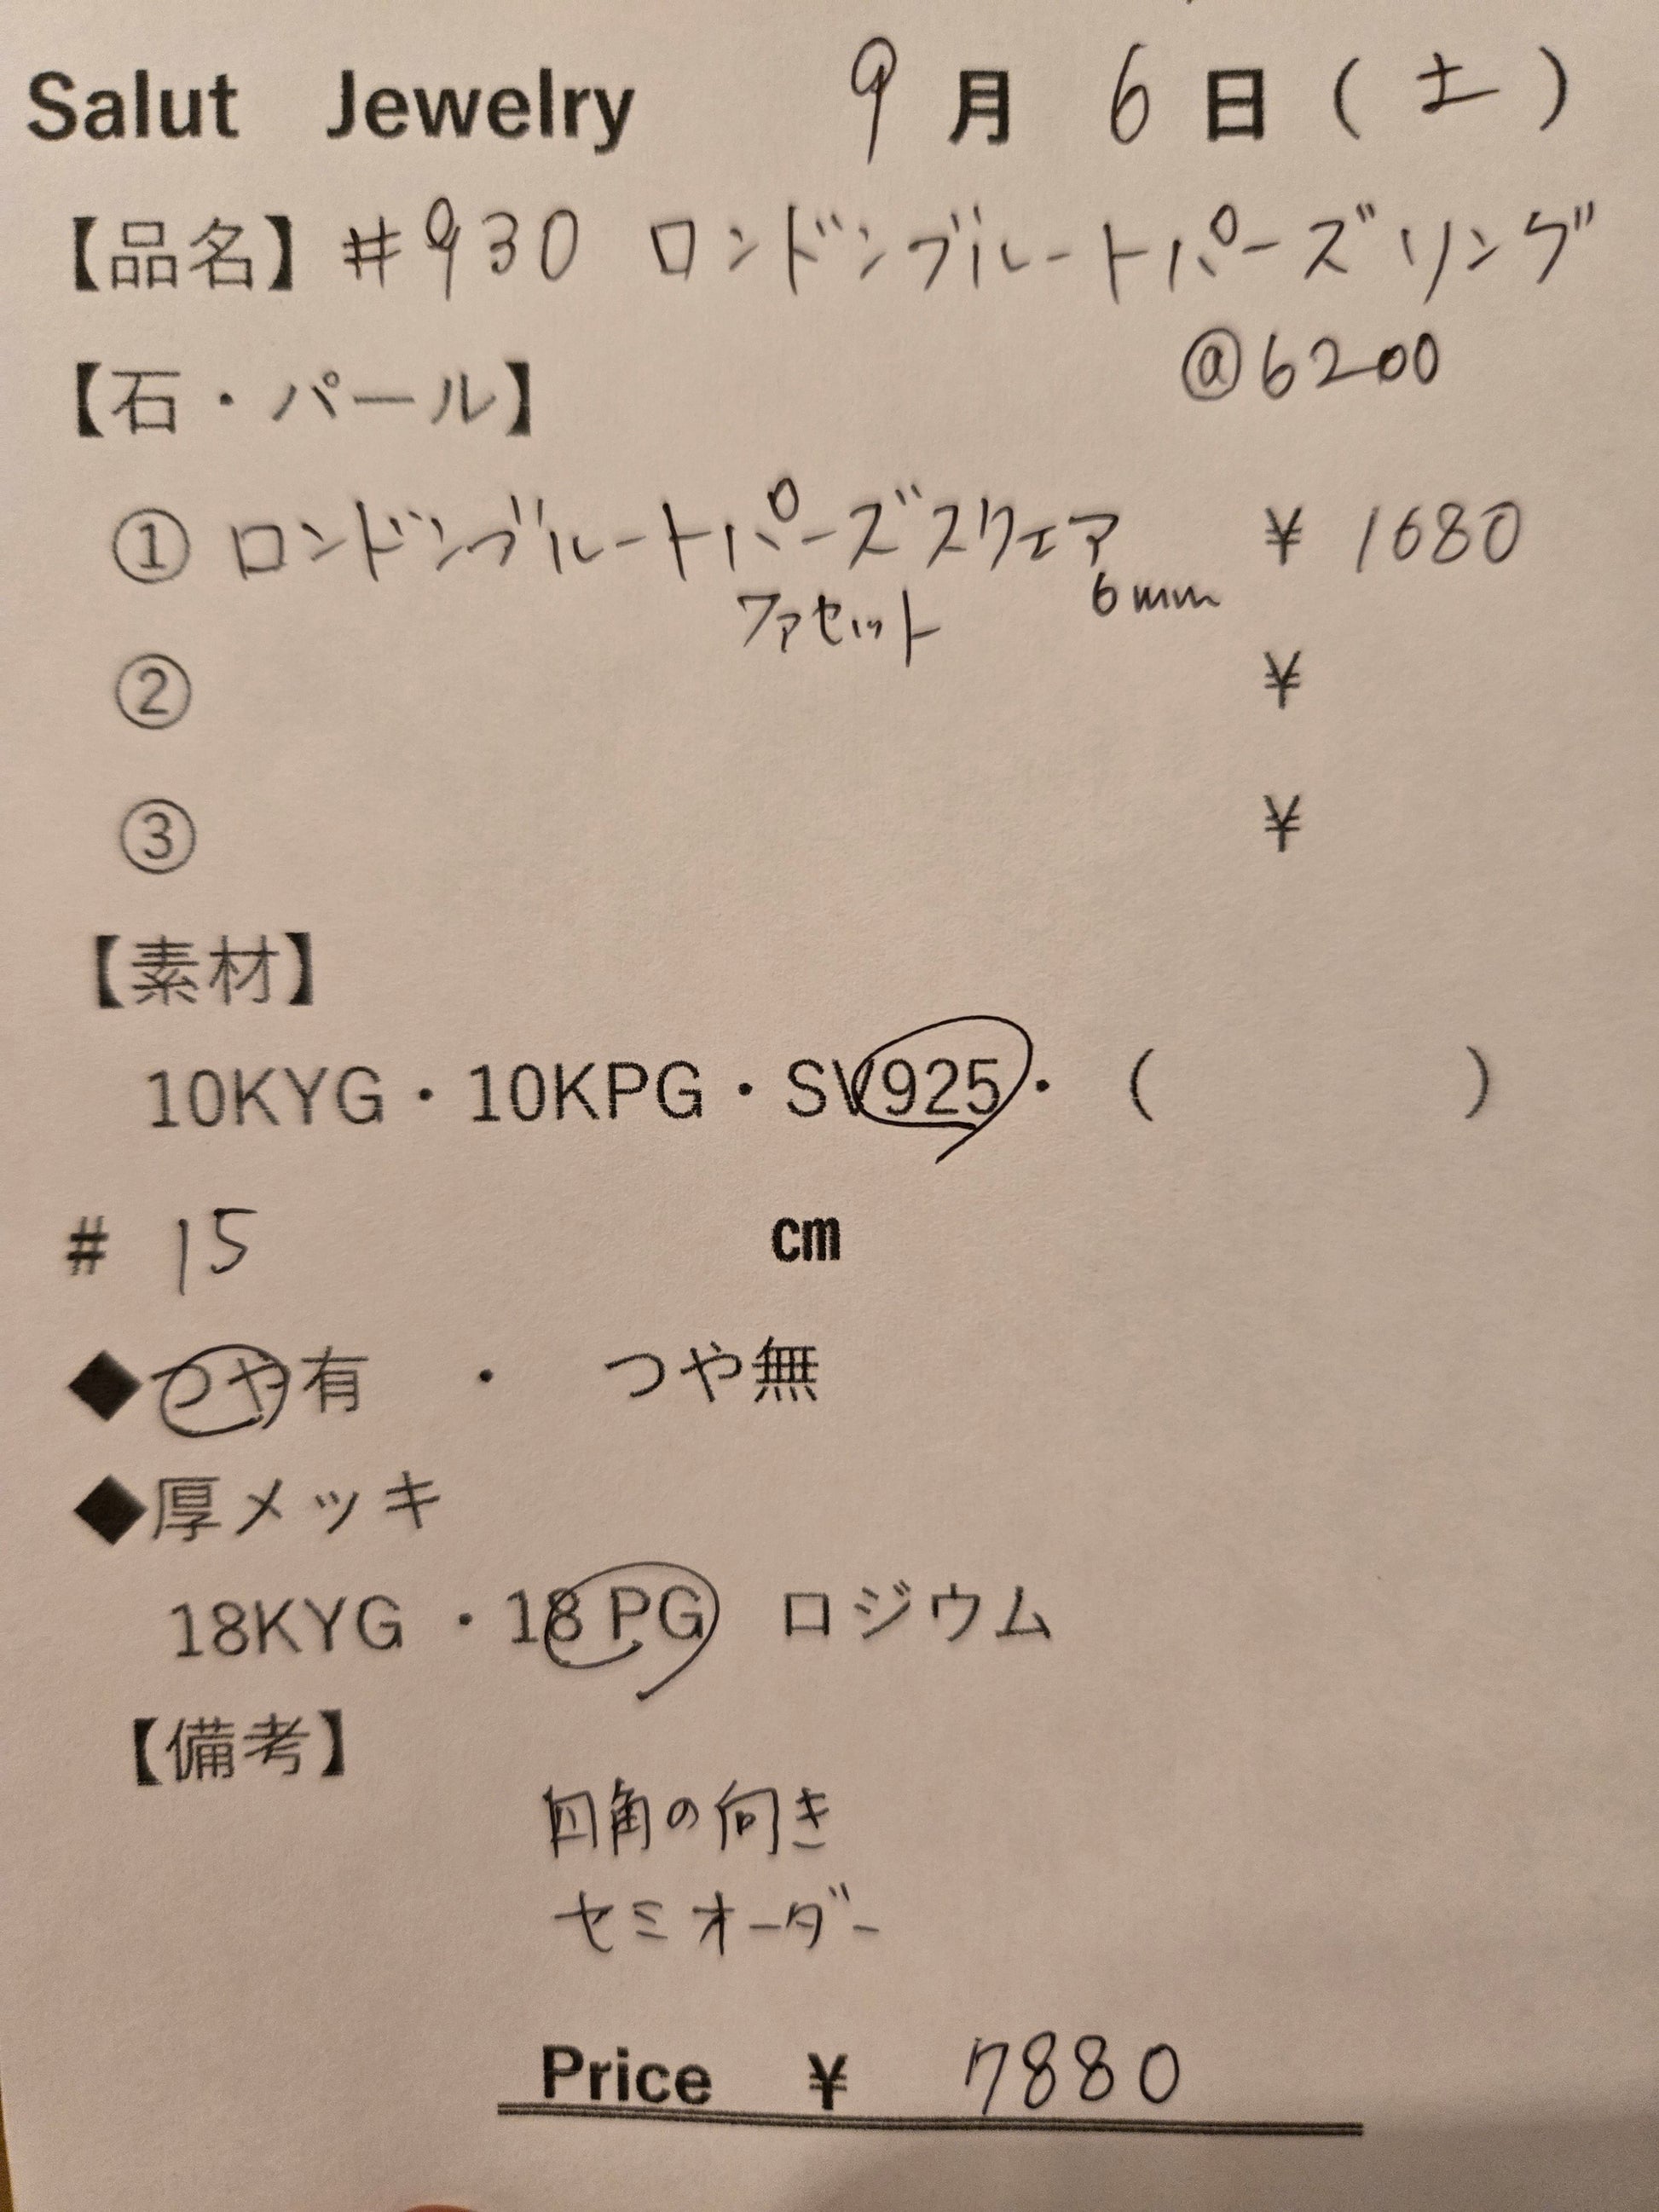 Salut Jewelry 9月6日(土)
【品名】#930 ロンドンブルートパーズリング
@6200
【石・パール】
① ロンドンブルートパーズスクェア ¥1680
ファセット 6mm
② ¥
③ ¥
【素材】
10KYG・10KPG・SV925・( )
# 15 cm
◆つや有 ・ つや無
◆厚メッキ
18KYG ・18 PG ロジウム
【備考】
四角の向き
セミオーダー
Price ¥ 7880